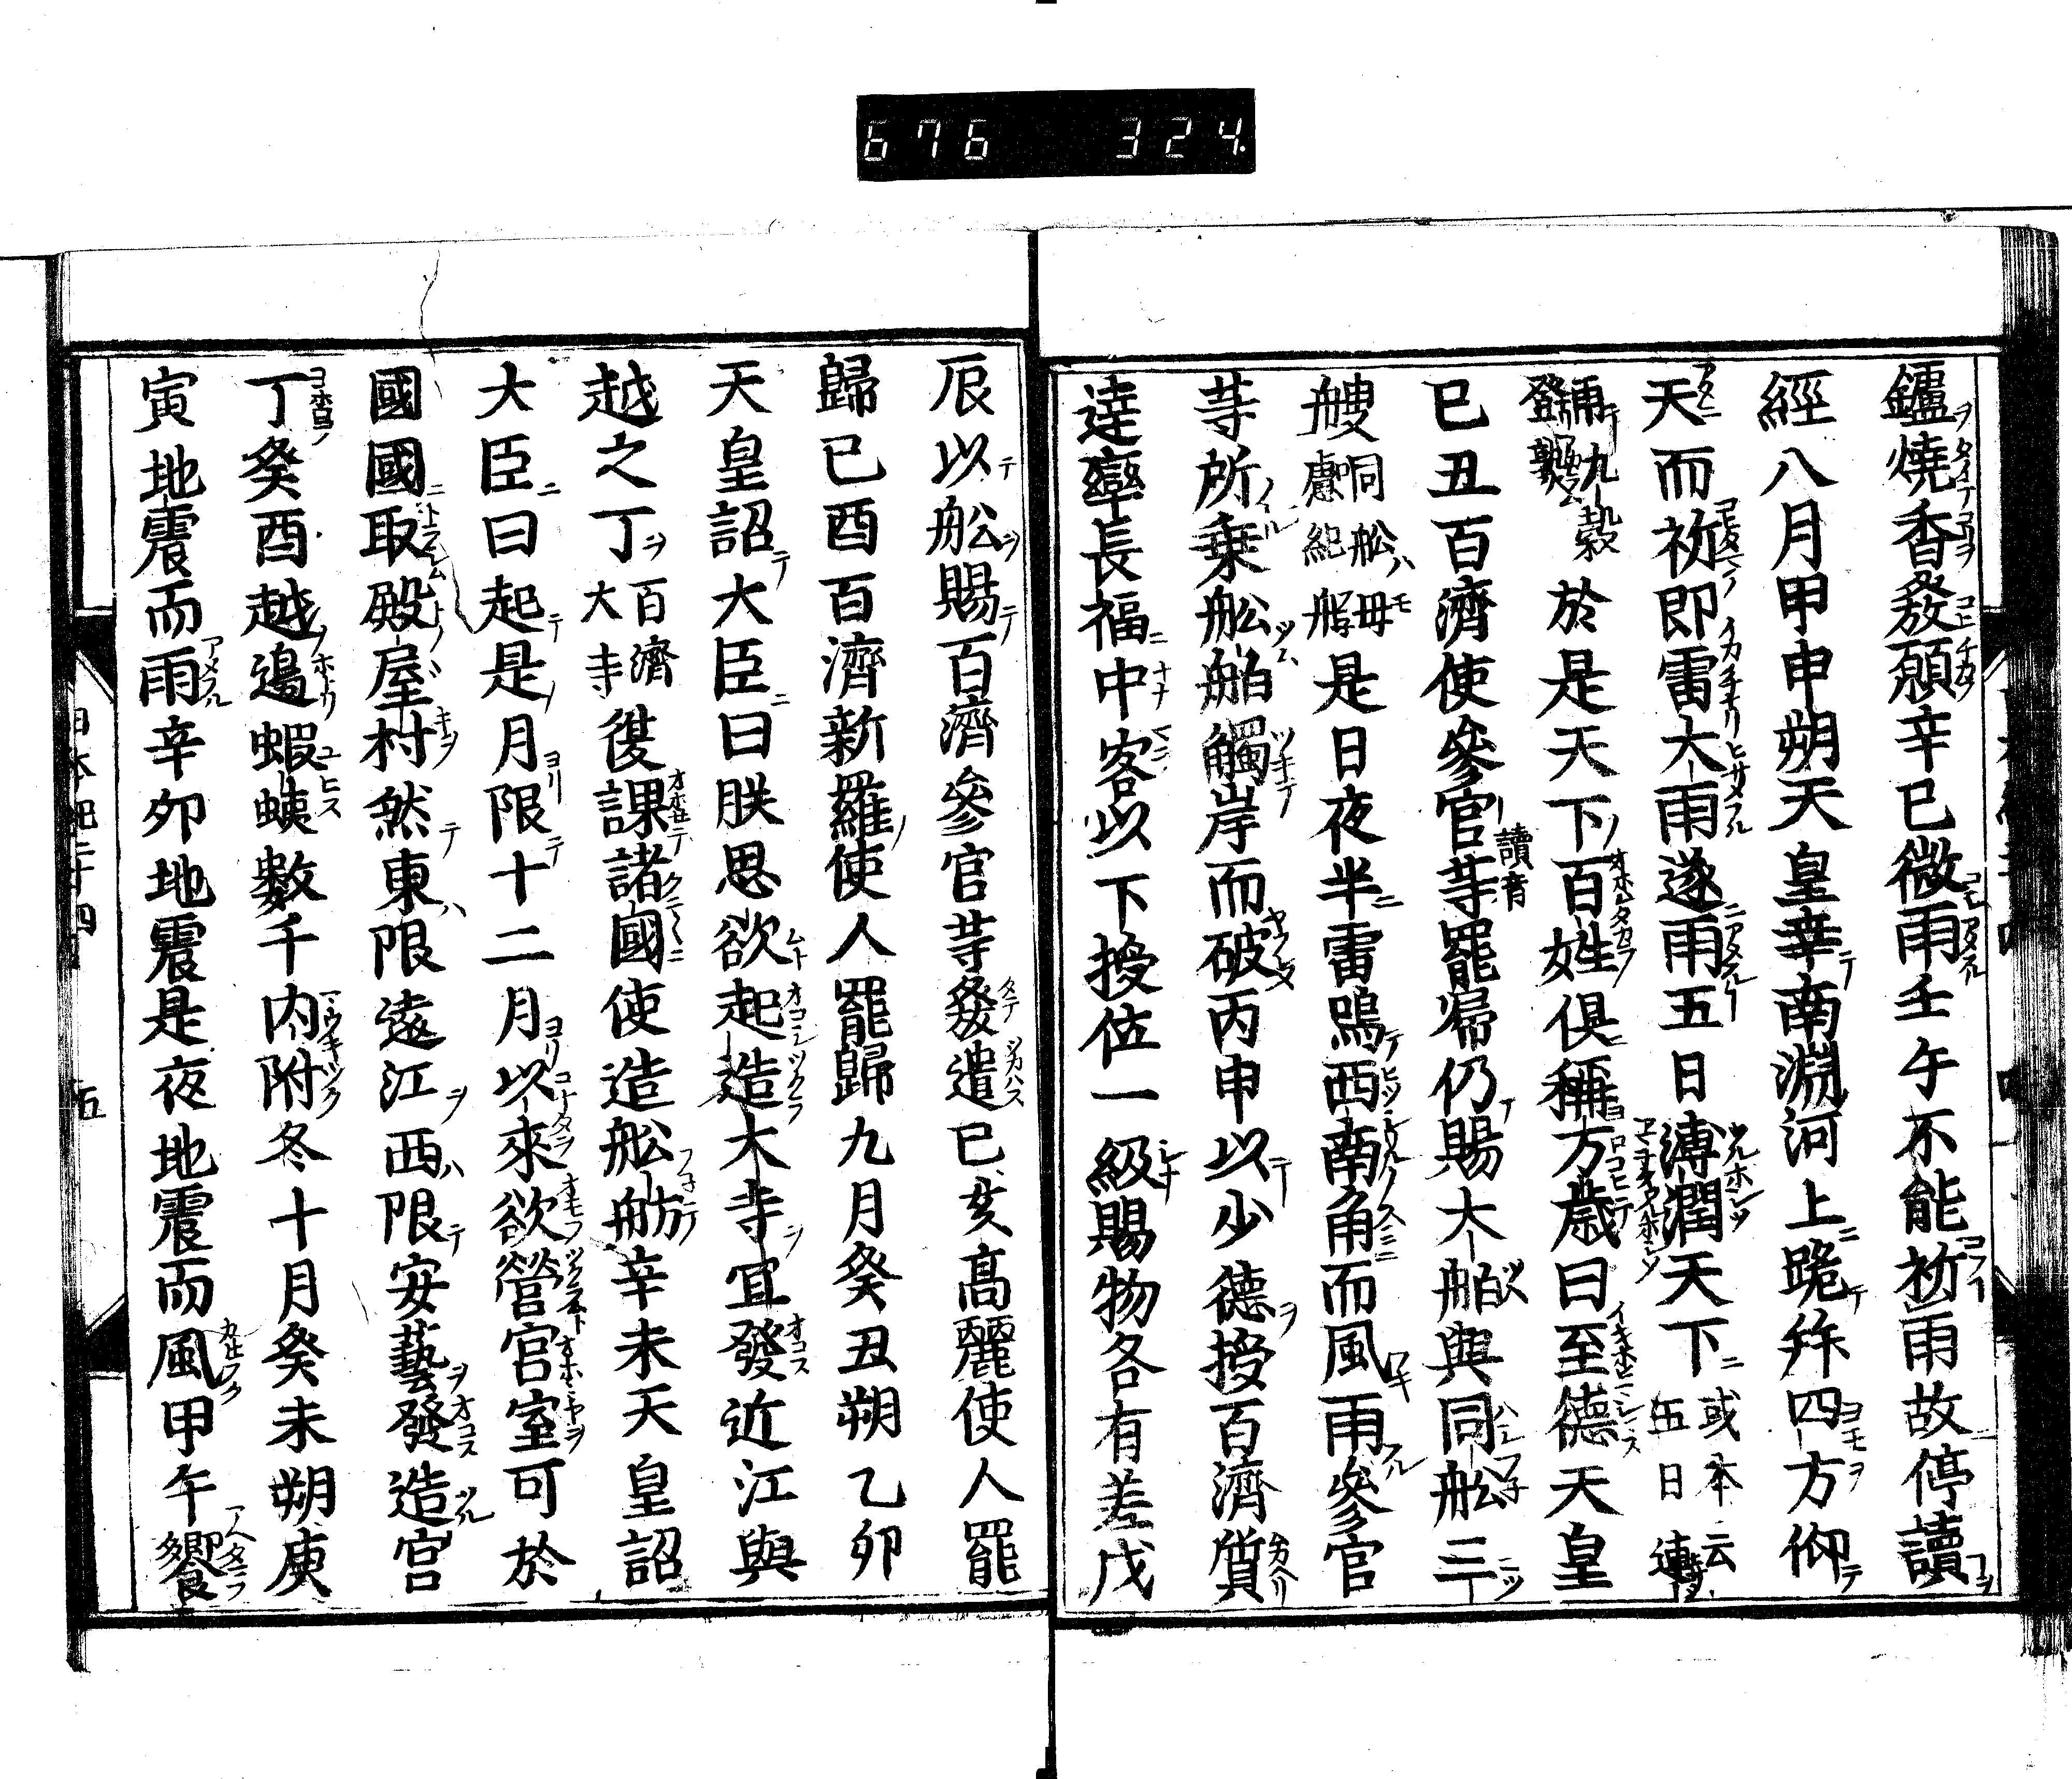 676 324
鑪燒香發願辛巳微雨壬午不能祈雨故停讀
經八月甲申朔天皇幸南淵河上跪拜四方仰
天而祈即雷大雨遂雨五日溥潤天下或本云五日連
雨九穀登熟於是天下百姓俱稱万歲曰至德天皇
己丑百濟使參官等罷歸仍賜大舶與同舩三
艘同舩母慮紀舩是日夜半雷鳴西南角而風雨參官
等所乗舩舶觸岸而破丙申以少德授百濟質
達率長福中客以下授位一級賜物各有差戊
辰以舩賜百濟參官等發遣己亥高麗使人罷
歸己酉百濟新羅使人罷歸九月癸丑朔乙卯
天皇詔大臣曰朕思欲起造大寺宜發近江與
越之丁百濟大寺復課諸國使造舩舫辛未天皇詔
大臣曰起是月限十二月以來欲營宮室可於
國國取殿屋材然東限遠江西限安藝發造宮
丁癸酉越邊蝦蛦數千內附冬十月癸未朔庚
寅地震而雨辛卯地震是夜地震而風甲午饗
日本紀二十四 五